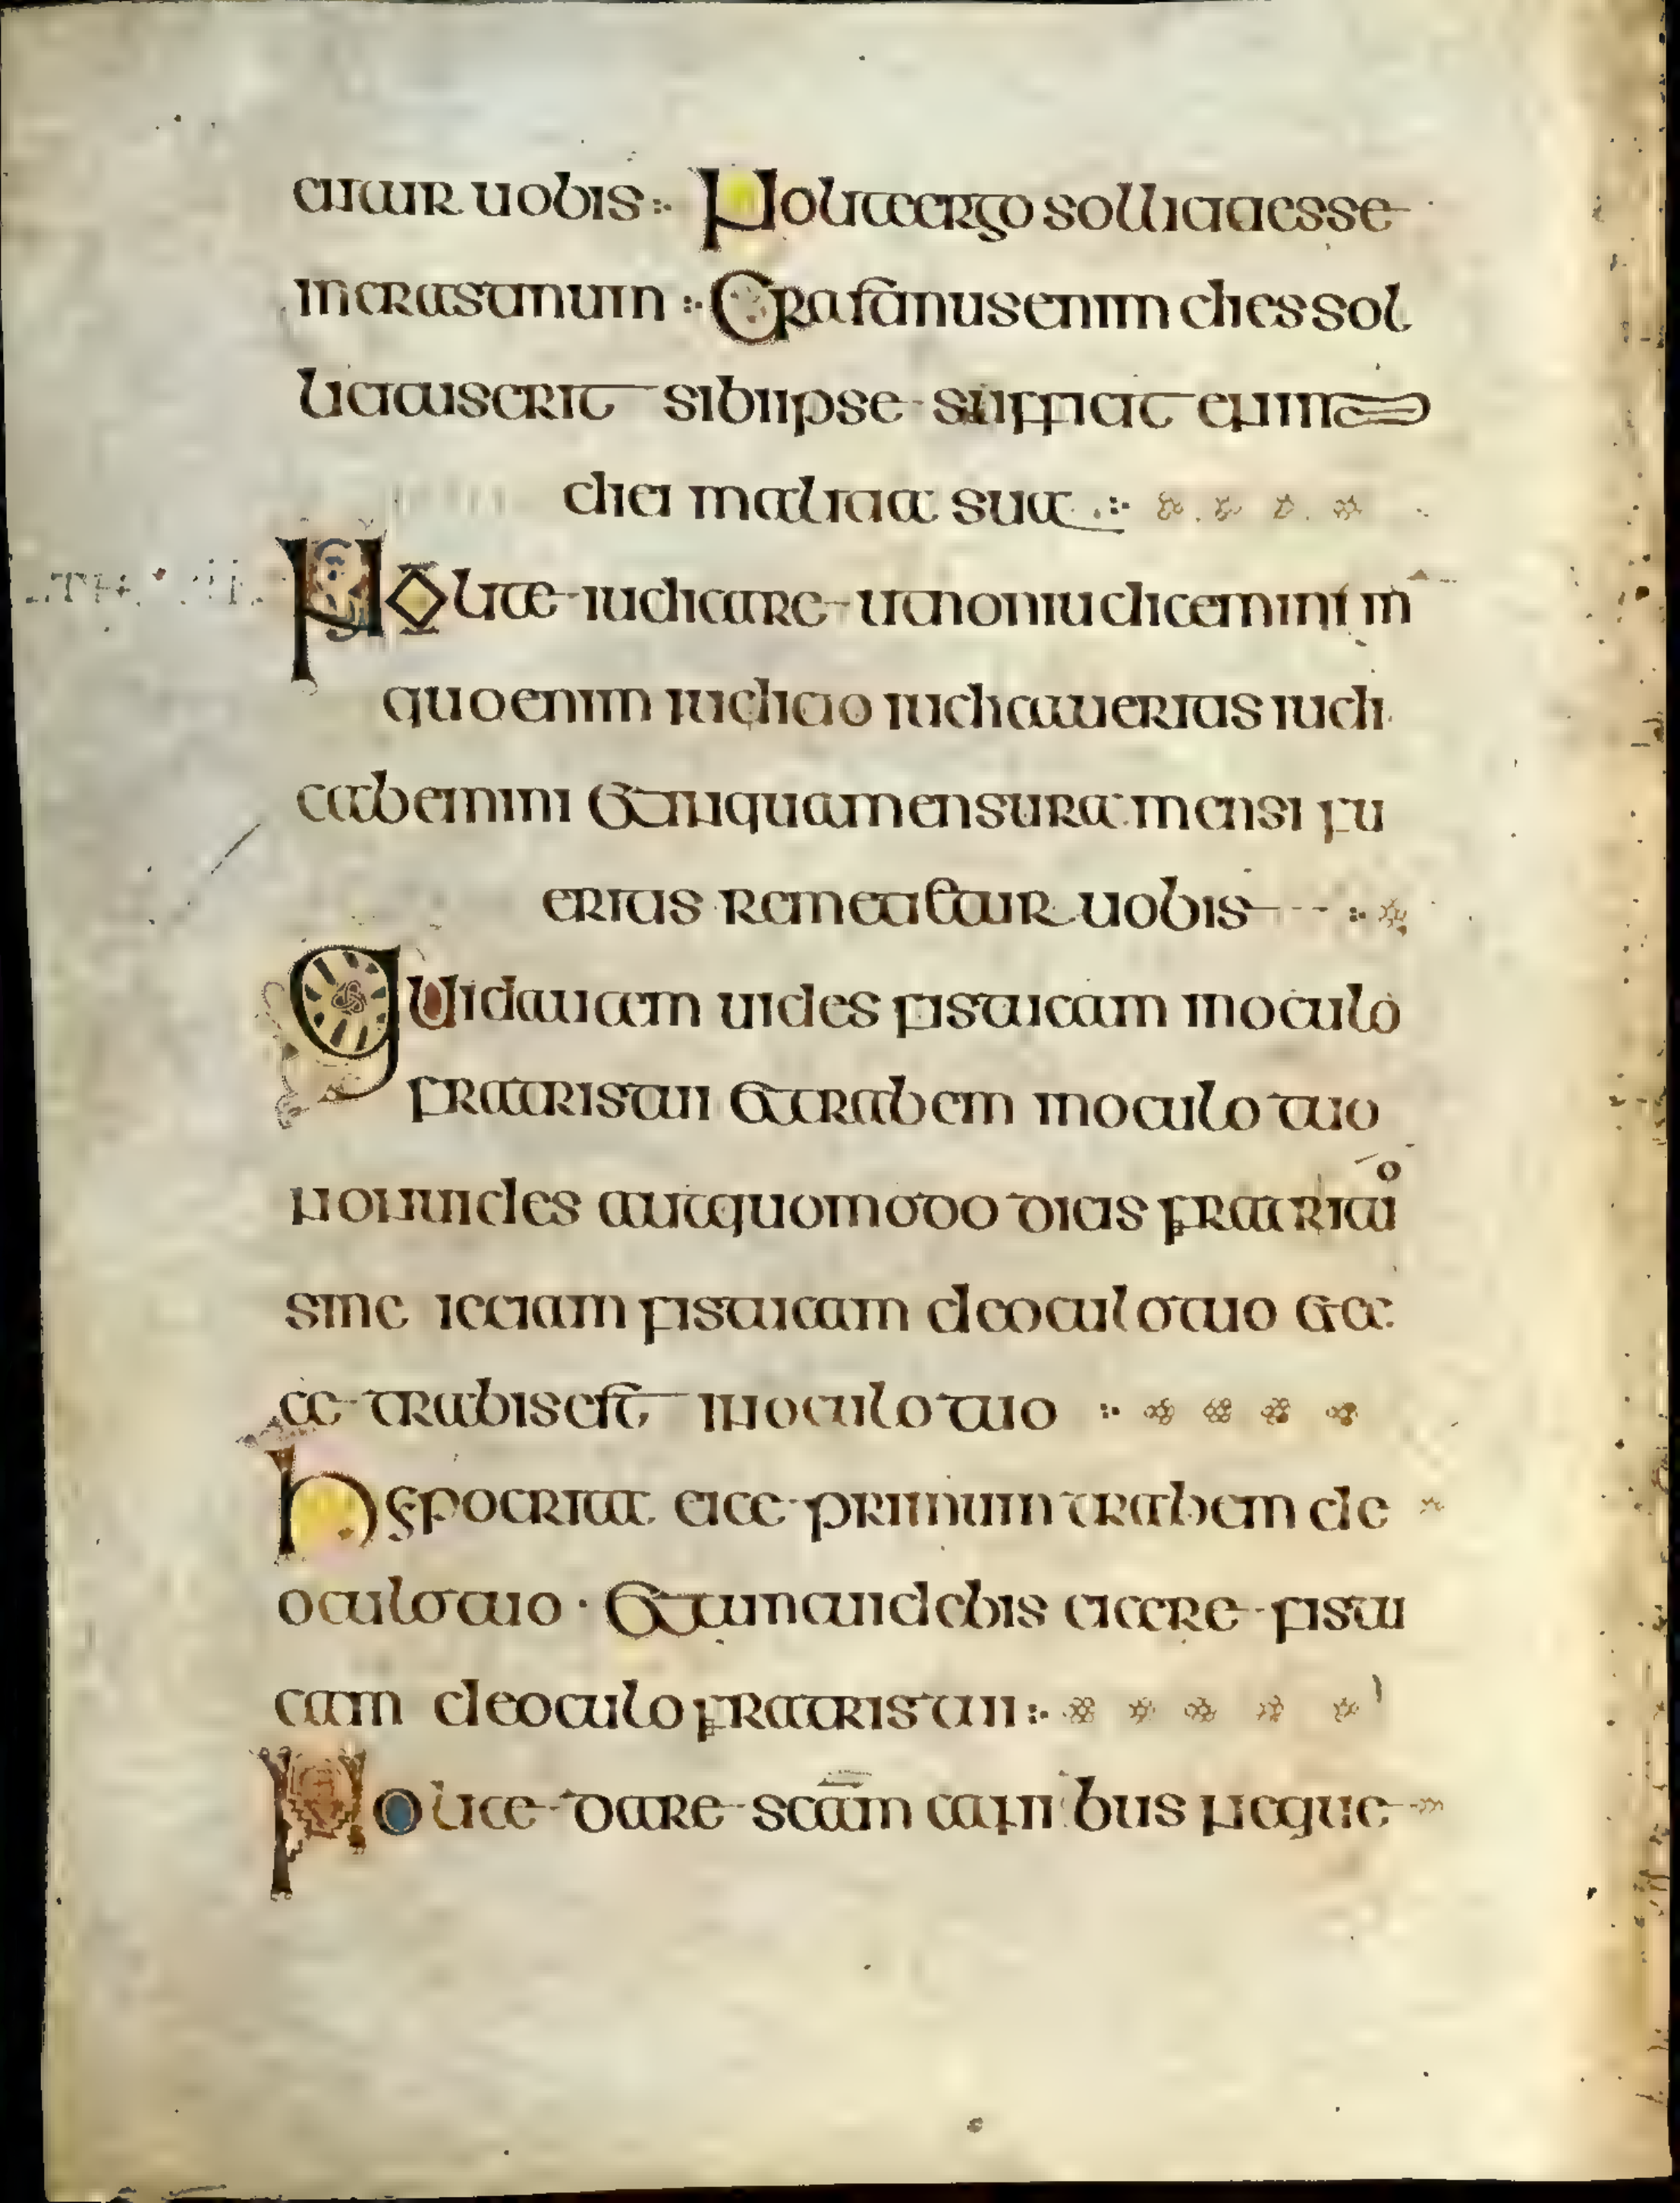 cientur uobis Nolite ergo solliciti esse
in crastinum Crastinus enim dies sol
licitus erit sibi ipse sufficit enim
diei malitia sua
Nolite iudicare ut non iudicemini in
quo enim iudicio iudicaueritis iudi
cabemini et in qua mensura mensi fu
eritis remetietur uobis
Quid autem uides fistucam in oculo
fratris tui et trabem in oculo tuo
non uides aut quomodo dicis fratri tuo
sine iceiam fistucam de oculo tuo et ec
ce trabis est in oculo tuo
hypocrita eice primum trabem de
oculo tuo et tunc uidebis eicere fistu
cam de oculo fratris tui
Nolite dare scam canibus neque